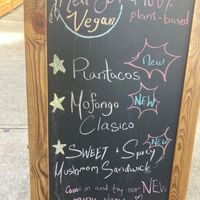 Vegan
100%
plant-based
New
Plantacos
Mofongo
NEW
Clasico
NEW
SWEET + Spicy
Mushroom Sandwich
Come in and try our NEW